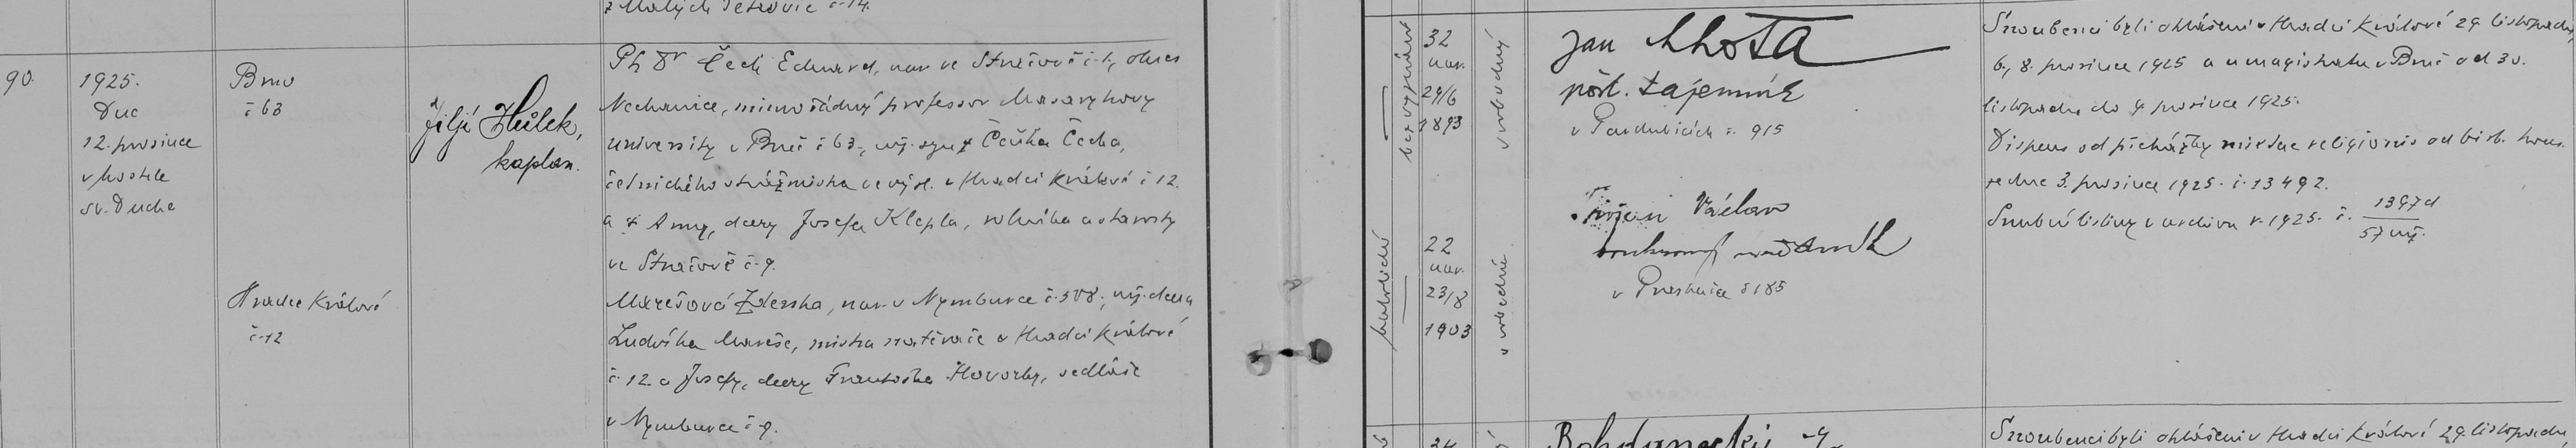 z Malých Petrovic č. 14.
90.
1925.
Dne
12. prosince
v kostele
sv. Ducha
Brno
č 63
Jiljí Hůlek,
kaplan.
Ph Dr Čech Eduard, nar. ve Stračově č. 1, okres
Nechanice, mimořádný professor Masarykovy
university v Brně č 63., mž. syn † Čeňka Čecha,
četnického strážmistra ve výsl. v Hradci Králové č 12.
a † Anny, dcery Josefa Klepla, rolníka a starosty
ve Stračově č. 9.
Hradec Králové
č. 12
Marešová Zdenka, nar. v Nymburce č. 508., mž. dcera
Ludvíka Mareše, mistra natěrače v Hradci Králové
č. 12 a Josefy, dcery Františka Hovorky, sedláře
v Nymburce č. 9.
bez vyznání
32
nar.
29/6
1893
svobodný
katolické
22
nar.
23/8
1903
svobodná
Jan Lhota
pošt. tajemník
v Pardubicích č. 915
Václav
v č 185
Snoubenci byli ohlášeni v Hradci Králové 29. listopadu,
6., 8. prosince 1925 a u magistrátu v Brně od 30.
listopadu do 9 prosince 1925.
Dispens od překážky mixtae religionis od bisk. kons.
ze dne 3. prosince 1925. č. 13492.
Snubní listiny v archivu r. 1925. č. 1397d
57
Snoubenci byli ohlášeni v Hradci Králové 29. listopadu,